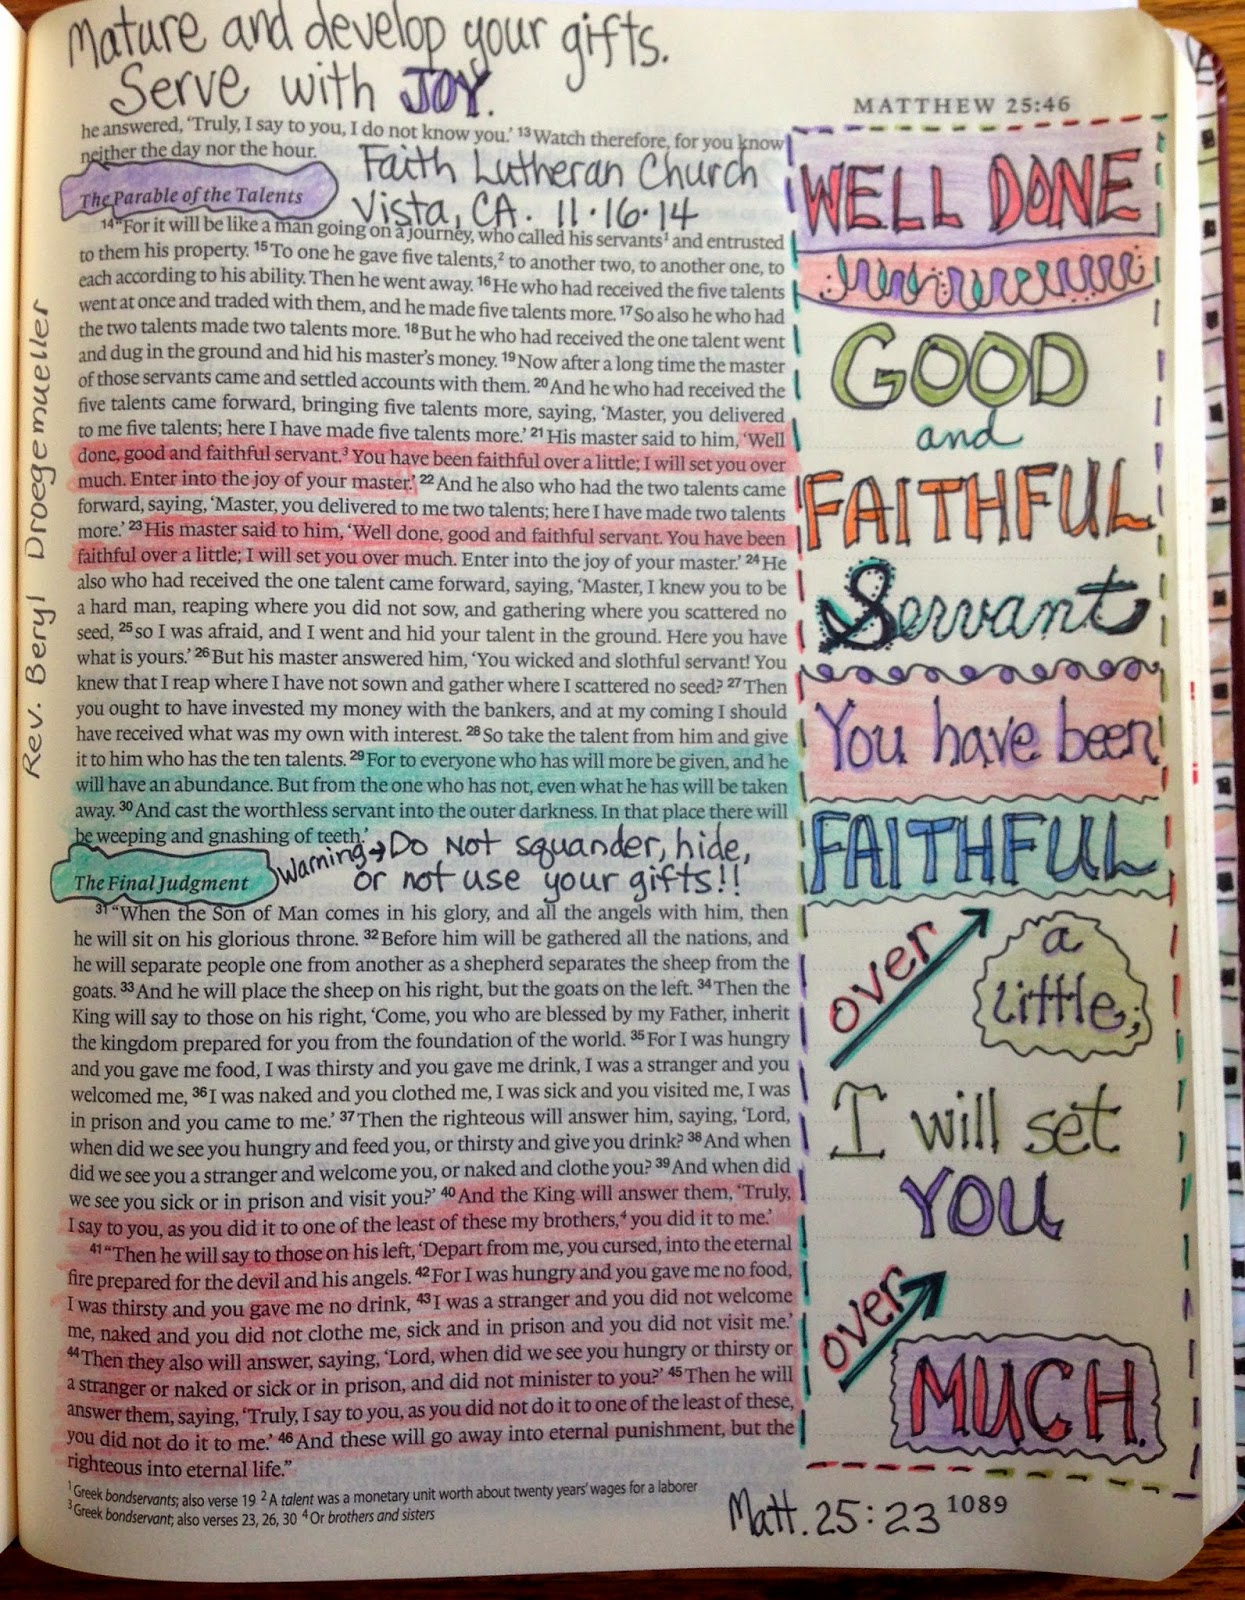 Mature and develop your gifts.
Serve with JOY.
MATTHEW 25:46
he answered, ‘Truly, I say to you, I do not know you.’ 13 Watch therefore, for you know
neither the day nor the hour.
Faith Lutheran Church
The Parable of the Talents
Vista, CA. 11·16·14
14 “For it will be like a man going on a journey, who called his servants1 and entrusted
to them his property. 15 To one he gave five talents,2 to another two, to another one, to
each according to his ability. Then he went away. 16 He who had received the five talents
went at once and traded with them, and he made five talents more. 17 So also he who had
the two talents made two talents more. 18 But he who had received the one talent went
and dug in the ground and hid his master’s money. 19 Now after a long time the master
of those servants came and settled accounts with them. 20 And he who had received the
five talents came forward, bringing five talents more, saying, ‘Master, you delivered
to me five talents; here I have made five talents more.’ 21 His master said to him, ‘Well
done, good and faithful servant.3 You have been faithful over a little; I will set you over
much. Enter into the joy of your master.’ 22 And he also who had the two talents came
forward, saying, ‘Master, you delivered to me two talents; here I have made two talents
more.’ 23 His master said to him, ‘Well done, good and faithful servant. You have been
faithful over a little; I will set you over much. Enter into the joy of your master.’ 24 He
also who had received the one talent came forward, saying, ‘Master, I knew you to be
a hard man, reaping where you did not sow, and gathering where you scattered no
seed, 25 so I was afraid, and I went and hid your talent in the ground. Here you have
what is yours.’ 26 But his master answered him, ‘You wicked and slothful servant! You
knew that I reap where I have not sown and gather where I scattered no seed? 27 Then
you ought to have invested my money with the bankers, and at my coming I should
have received what was my own with interest. 28 So take the talent from him and give
it to him who has the ten talents. 29 For to everyone who has will more be given, and he
will have an abundance. But from the one who has not, even what he has will be taken
away. 30 And cast the worthless servant into the outer darkness. In that place there will
be weeping and gnashing of teeth.’
Warning → Do Not squander, hide,
or not use your gifts!!
The Final Judgment
31 “When the Son of Man comes in his glory, and all the angels with him, then
he will sit on his glorious throne. 32 Before him will be gathered all the nations, and
he will separate people one from another as a shepherd separates the sheep from the
goats. 33 And he will place the sheep on his right, but the goats on the left. 34 Then the
King will say to those on his right, ‘Come, you who are blessed by my Father, inherit
the kingdom prepared for you from the foundation of the world. 35 For I was hungry
and you gave me food, I was thirsty and you gave me drink, I was a stranger and you
welcomed me, 36 I was naked and you clothed me, I was sick and you visited me, I was
in prison and you came to me.’ 37 Then the righteous will answer him, saying, ‘Lord,
when did we see you hungry and feed you, or thirsty and give you drink? 38 And when
did we see you a stranger and welcome you, or naked and clothe you? 39 And when did
we see you sick or in prison and visit you?’ 40 And the King will answer them, ‘Truly,
I say to you, as you did it to one of the least of these my brothers,4 you did it to me.’
41 “Then he will say to those on his left, ‘Depart from me, you cursed, into the eternal
fire prepared for the devil and his angels. 42 For I was hungry and you gave me no food,
I was thirsty and you gave me no drink, 43 I was a stranger and you did not welcome
me, naked and you did not clothe me, sick and in prison and you did not visit me.’
44 Then they also will answer, saying, ‘Lord, when did we see you hungry or thirsty or
a stranger or naked or sick or in prison, and did not minister to you?’ 45 Then he will
answer them, saying, ‘Truly, I say to you, as you did not do it to one of the least of these,
you did not do it to me.’ 46 And these will go away into eternal punishment, but the
righteous into eternal life.”
1 Greek bondservants; also verse 19 2 A talent was a monetary unit worth about twenty years’ wages for a laborer
3 Greek bondservant; also verses 23, 26, 30 4 Or brothers and sisters
Rev. Beryl Droegemueller
WELL DONE
GOOD
and
FAITHFUL
Servant
You have been
FAITHFUL
over
a
little;
I will set
YOU
over
MUCH.
Matt. 25:23
1089